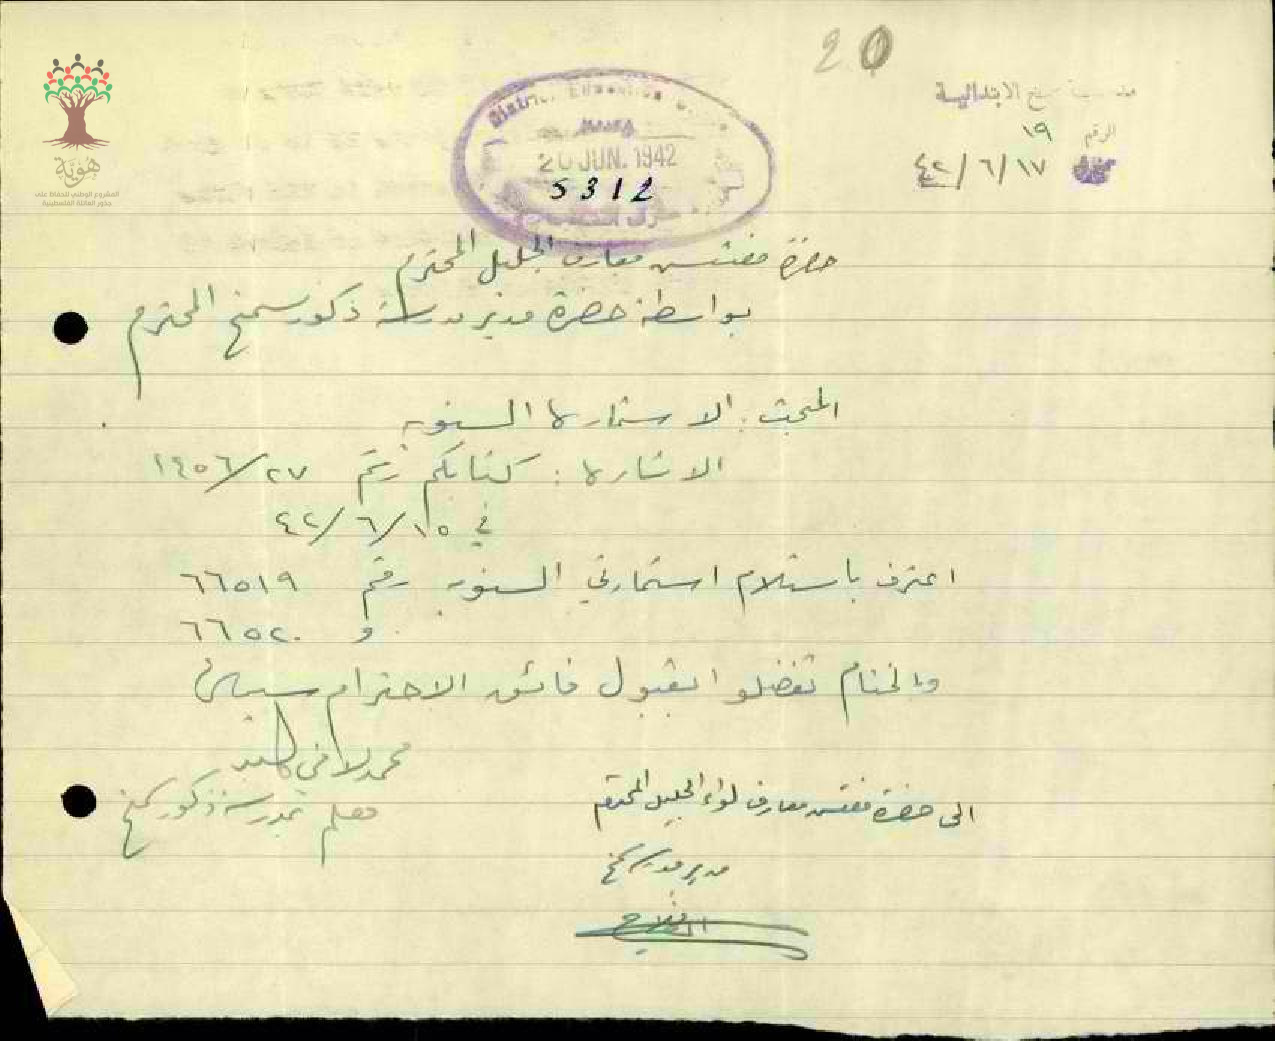 20
مدرسة سمخ الابتدائية
الرقم ١٩
٤٢/٦/١٧
District Education Office
20 JUN. 1942
5312
هُوِيَّة
المشروع الوطني للحفاظ على
جذور العائلة الفلسطينية
حضرة مفتش معارف الجليل المحترم
بواسطة حضرة مدير مدرسة ذكور سمخ المحترم
المبحث: الاستمارة السنوية
الاشارة: كتابكم رقم ١٤٥٦/٢٧
في ٤٢/٦/١٥
اعترف باستلام استمارتي السنوية رقم ٦٦٥١٩
و ٦٦٥٢٠
والختام تفضلوا بقبول فائق الاحترام سيدي
محمد لافي
معلم بمدرسة ذكور سمخ
الى حضرة مفتش معارف لواء الجليل المحترم
مدير مدرسة سمخ